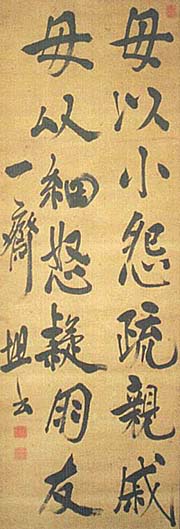 毋以小怨疏親戚
毋以細怒疑朋友
一齋坦書